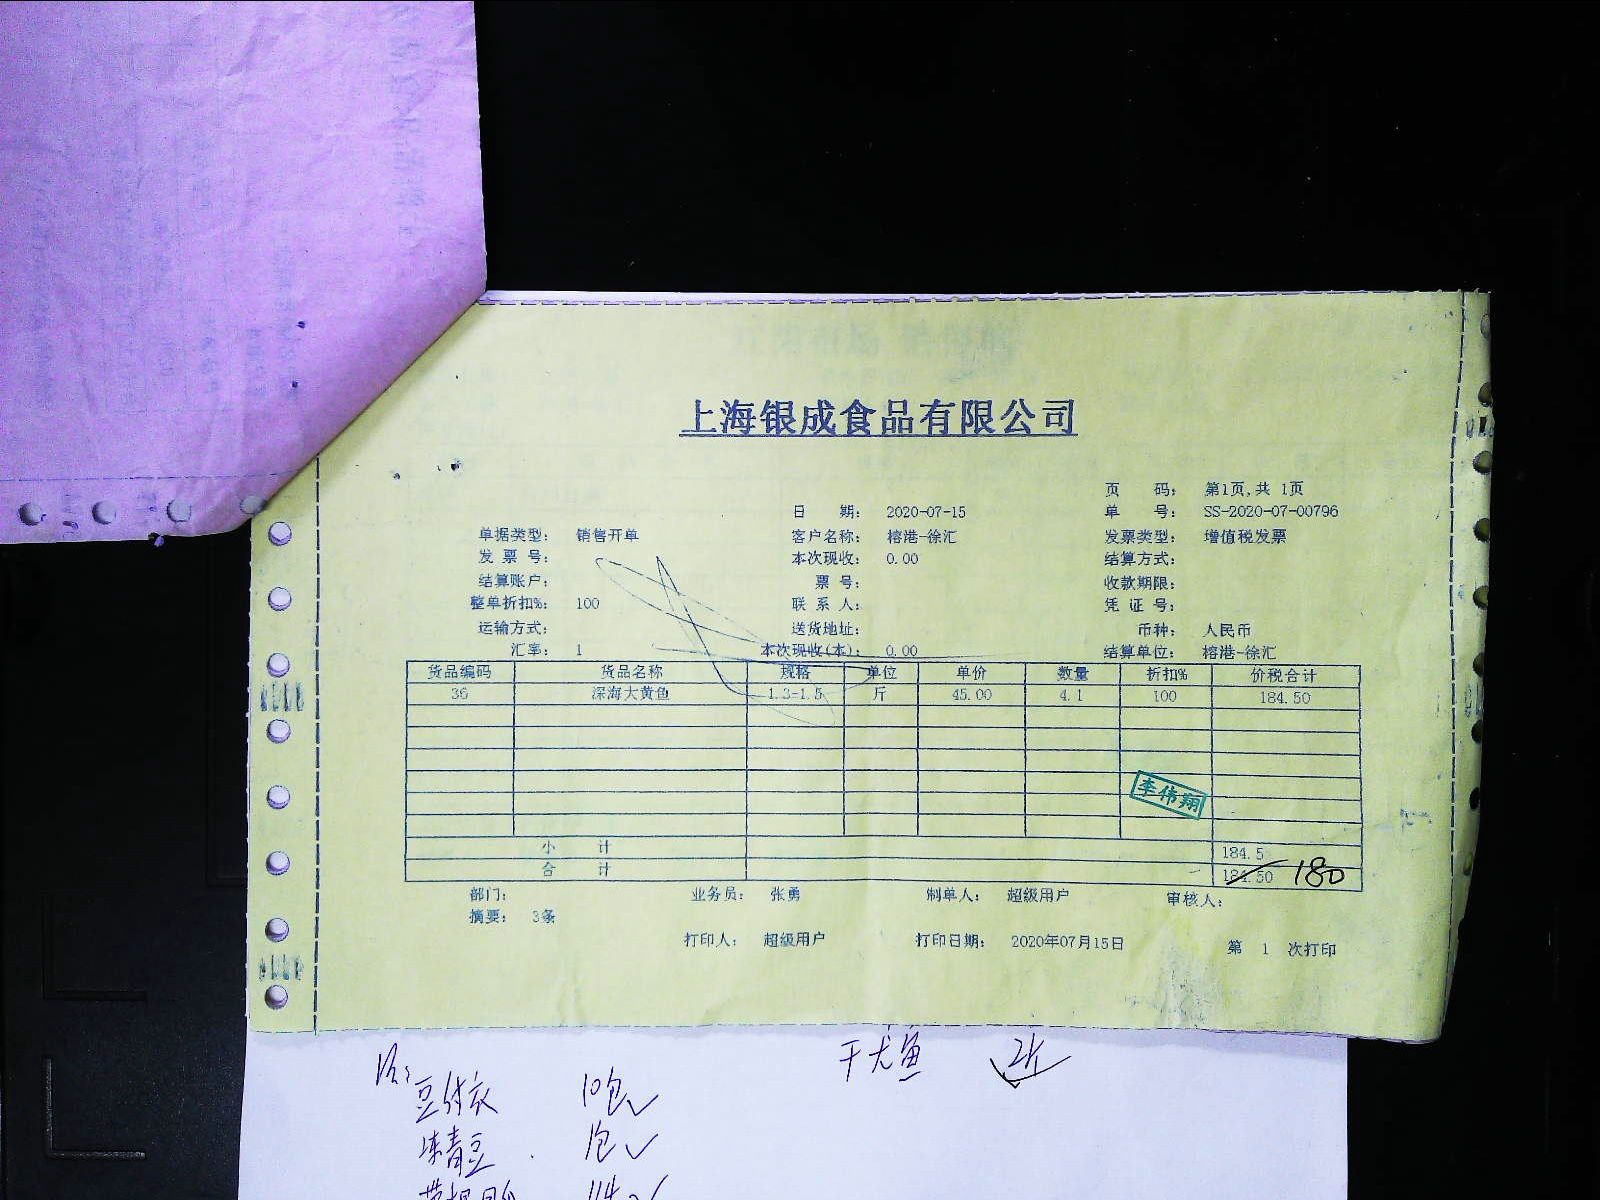 上海银成食品有限公司
页 码： 第1页,共 1页
日 期： 2020-07-15 单 号： SS-2020-07-00796
单据类型： 销售开单 客户名称： 榕港-徐汇 发票类型： 增值税发票
发 票 号： 本次现收： 0.00 结算方式：
结算账户： 票 号： 收款期限：
整单折扣%： 100 联 系 人： 凭 证 号：
运输方式： 送货地址： 币种： 人民币
汇率： 1 本次现收(本)： 0.00 结算单位： 榕港-徐汇
货品编码 货品名称 规格 单位 单价 数量 折扣% 价税合计
36 深海大黄鱼 1.3-1.5 斤 45.00 4.1 100 184.50
李伟翔
小 计 184.5
合 计 184.50 180
部门： 业务员： 张勇 制单人： 超级用户 审核人：
摘要： 3条
打印人： 超级用户 打印日期： 2020年07月15日 第 1 次打印
干尤鱼 2斤
豆付衣 10包
冻青豆 1包